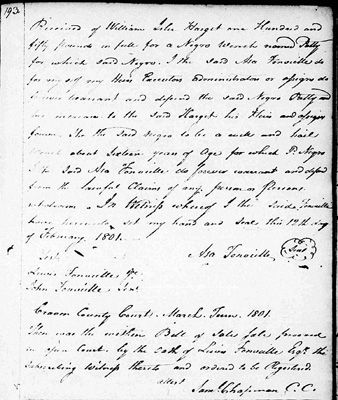 193
Received of William Isler Harget one Hundred and
fifty pounds in full for a Negro Wench named Patty
for which said Negro. I the said Asa Fonville do
for my self my Heirs Executors Administrators or assigns do
forever warrant and defend the said Negro Patty and
her increase to the said Harget his Heirs and assigns
forever. She the said Negro to be a well and
about Sixteen years of Age for which Negro
I the Said Asa Fonville do forever warrant and defend
from the lawful Claims of any person or persons
whatsoever. In Witness whereof I the Said Fonville
have hereunto set my hand and seal this 12th day
of February 1801.
Asa Fonville Seal
Lewis Fonville
John Fonville
Craven County Court. March Term. 1801.
Then was the within Bill of Sale proved
in open Court. by the oath of Lewis Fonville Esqr. the
subscribing Witness thereto and ordered to be Registered
attest
Saml. Chapman C.C.